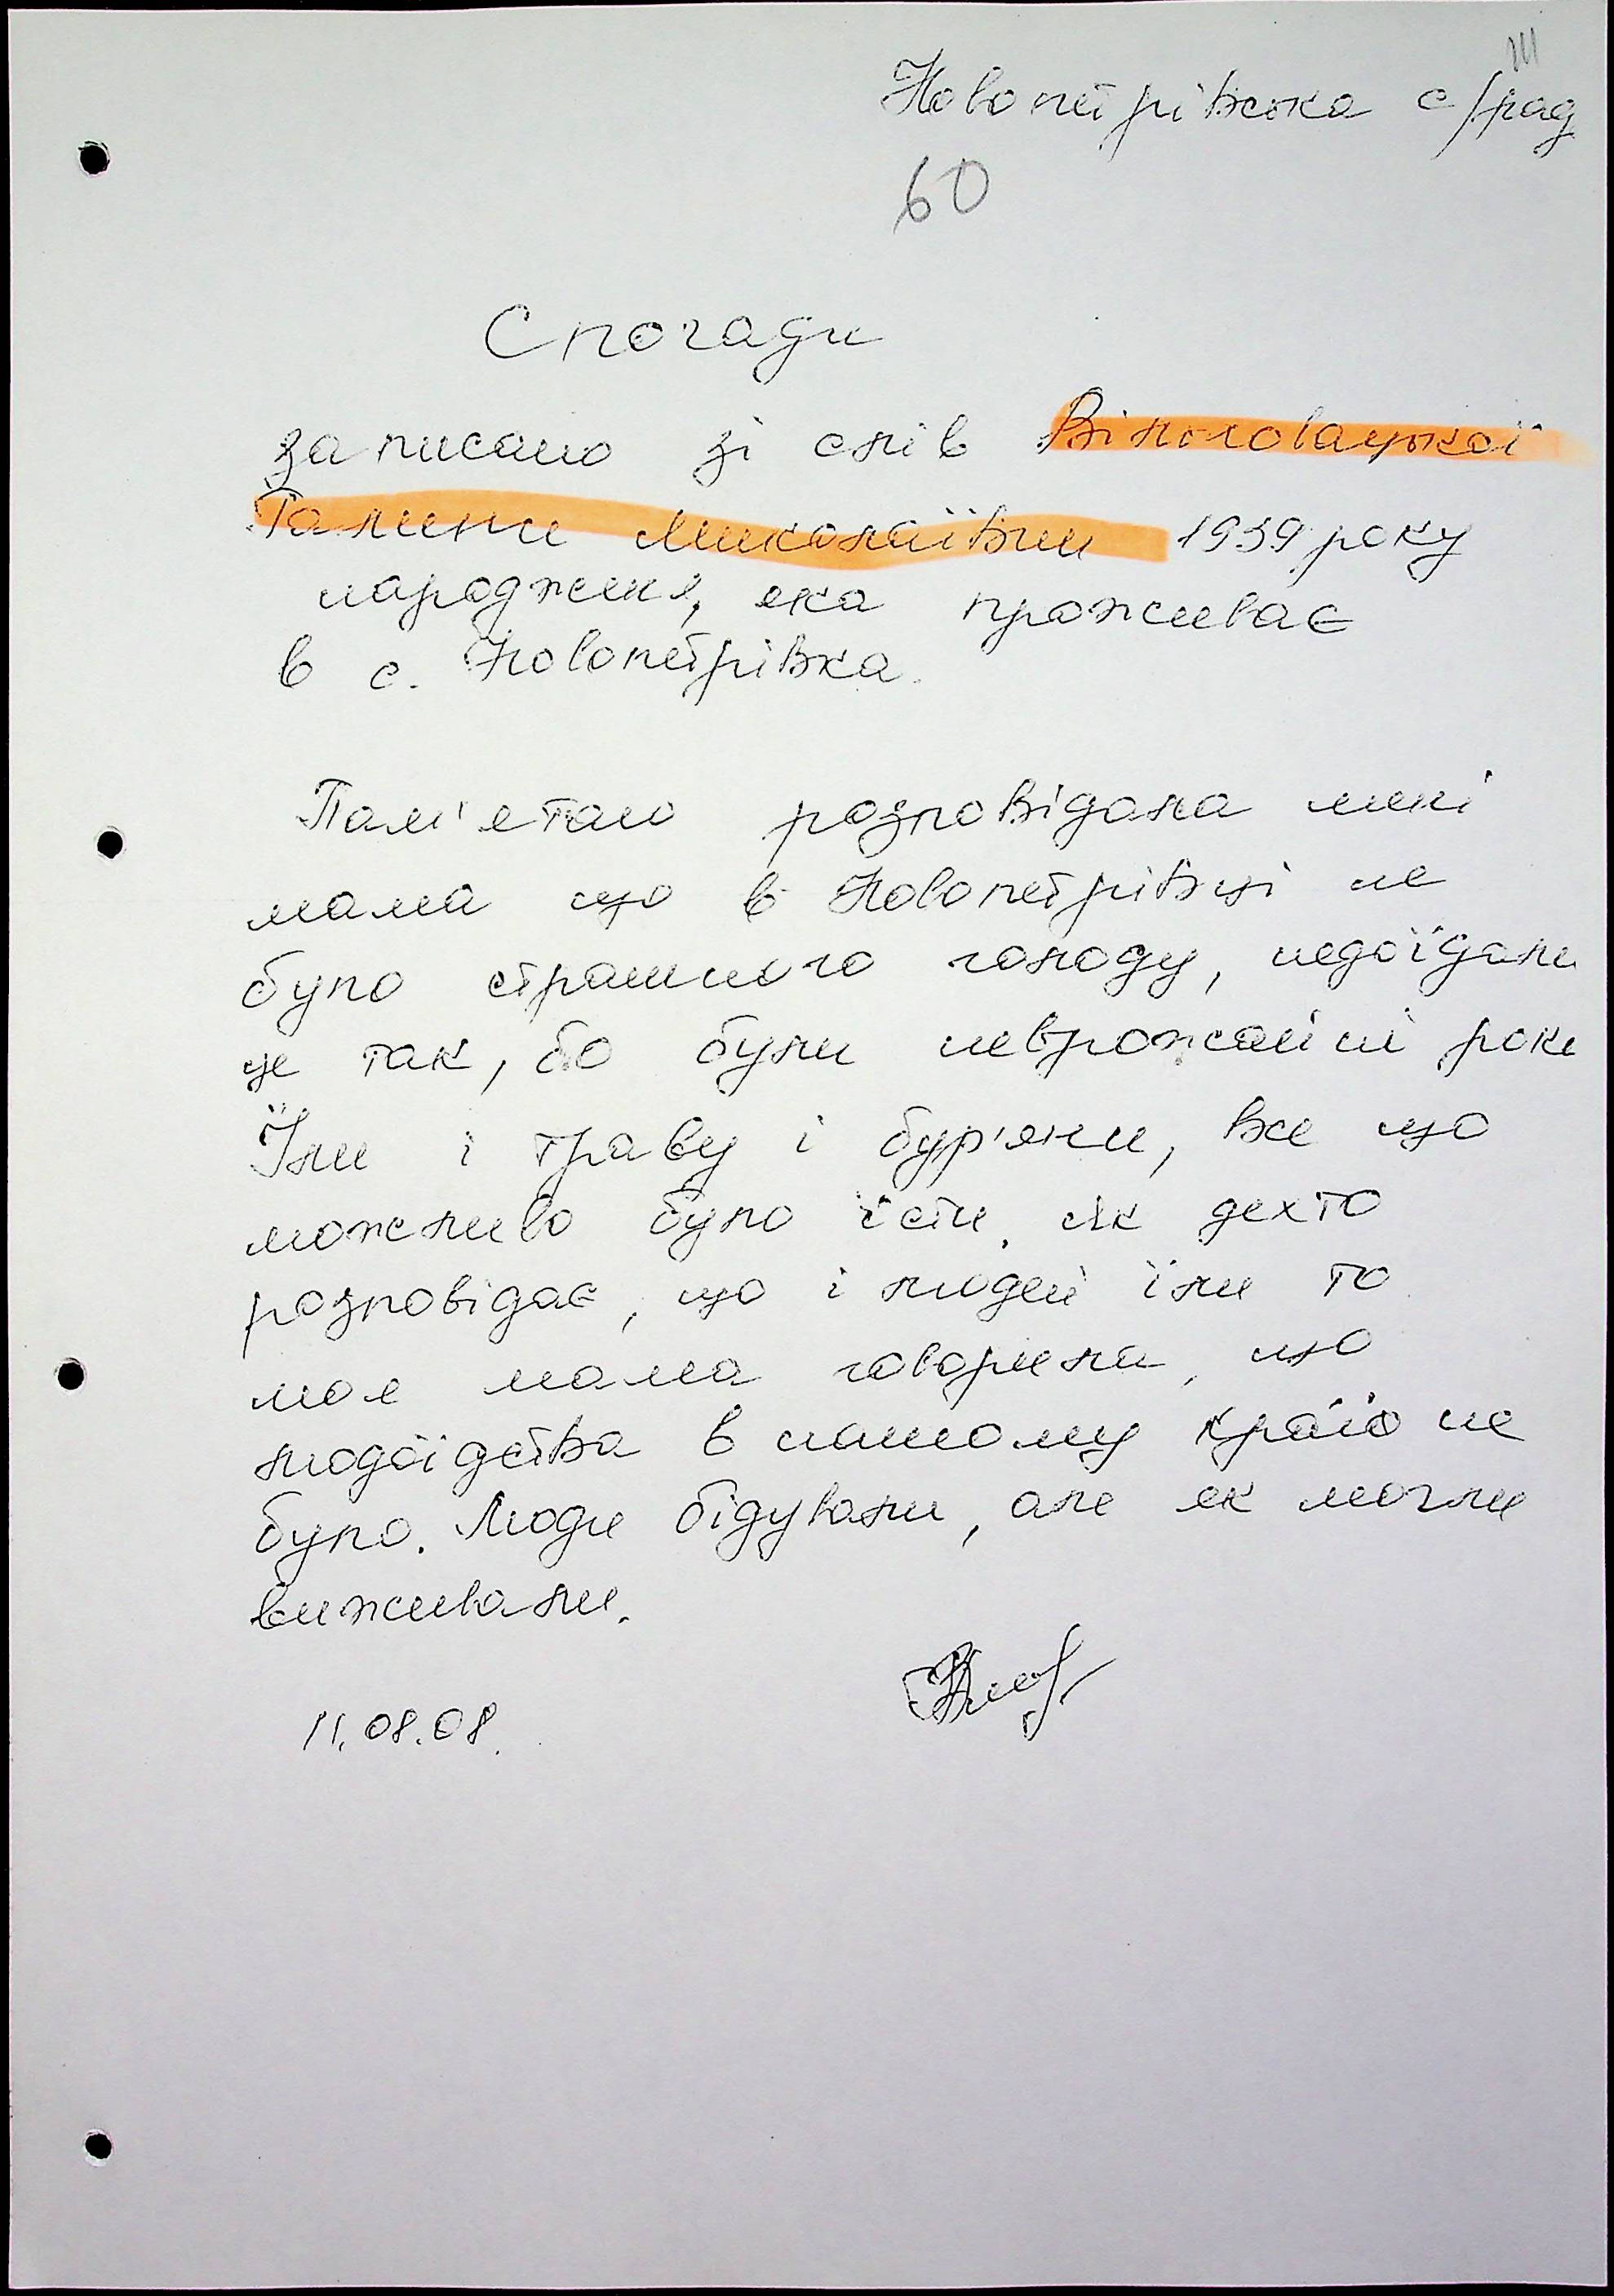 Новопетрівська с/рад
60
Спогади
записано зі слів Білоговацької
Галини Миколаївни 1939 року
народженя, яка проживає
в с. Новопетрівка.
Пам'ятаю розповідала мені
мама що в Новопетрівці не
було страшного голоду, недоїдали
це так, бо були неврожайні роки
Їли і траву і бур'яни, все що
можливо було їсти, як дехто
розповідає, що і людей їли то
моя мама говорила, що
людоїдства в нашому краю не
було. Люди бідували, але як могли
виживали.
11.08.08.